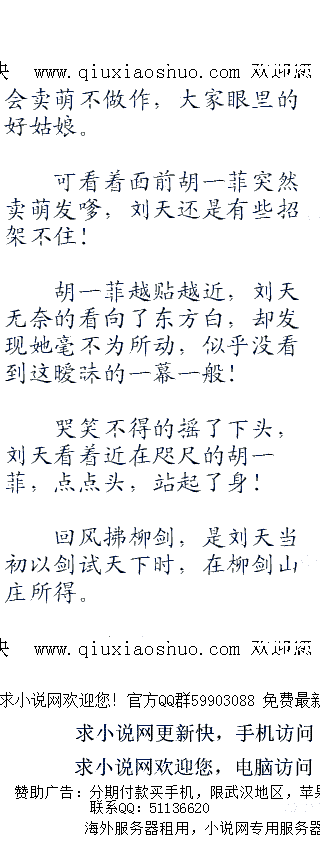 快 www.qiuxiaoshuo.com 欢迎您
会卖萌不做作，大家眼里的
好姑娘。
可看着面前胡一菲突然
卖萌发嗲，刘天还是有些招
架不住！
胡一菲越贴越近，刘天
无奈的看向了东方白，却发
现她毫不为所动，似乎没看
到这暧昧的一幕一般！
哭笑不得的摇了下头，
刘天看着近在咫尺的胡一
菲，点点头，站起了身！
回风拂柳剑，是刘天当
初以剑试天下时，在柳剑山
庄所得。
快 www.qiuxiaoshuo.com 欢迎您
求小说网欢迎您！官方QQ群59903088 免费最新
求小说网更新快，手机访问
求小说网欢迎您，电脑访问
赞助广告：分期付款买手机，限武汉地区，苹果
联系QQ：51136620
海外服务器租用，小说网专用服务器